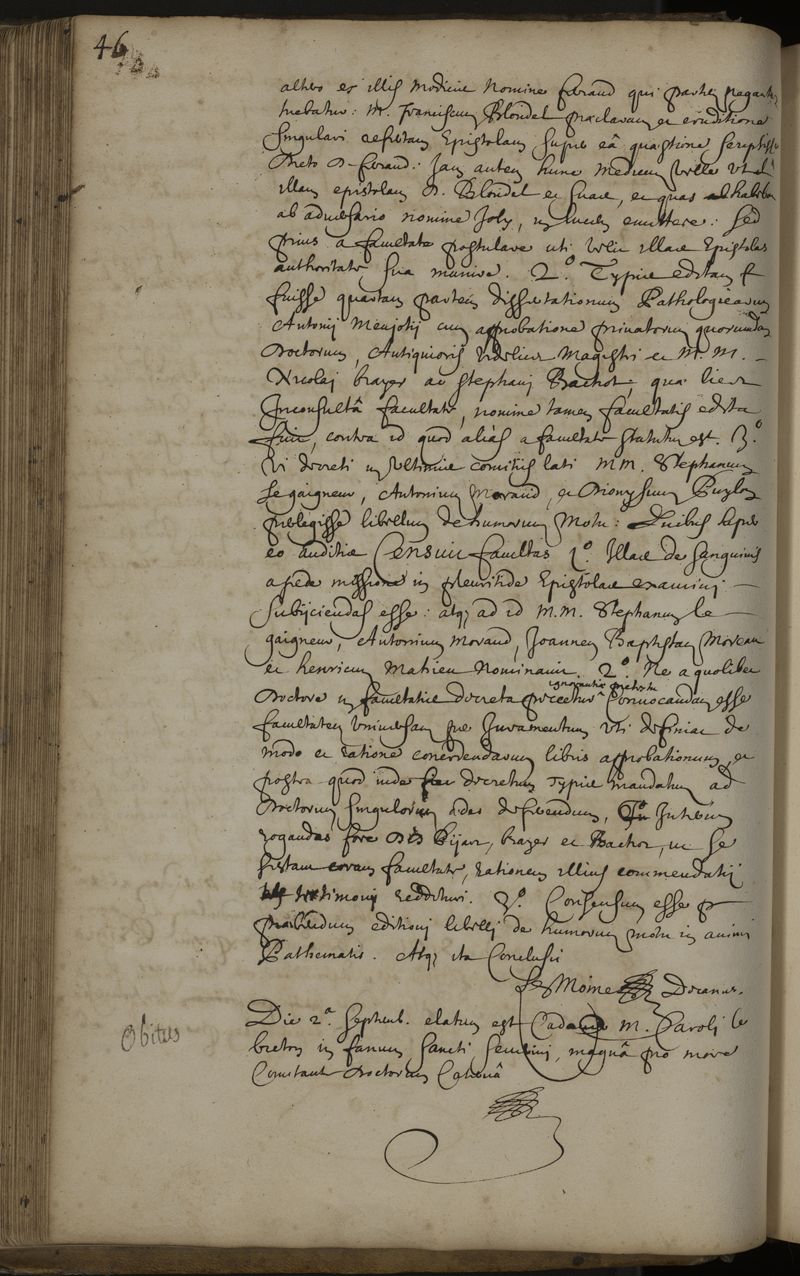 46
altero ex illis medicinae nomine Ferand qui partem negantem
M. Franciscum Blondel praeclaram ex eruditione
singulari Epistolam super eâ quaestione scripsisse
Dicto D. Ferand: Jam autem hunc medicum velle
illam epistolam D. Blondel et suas, et quas
ab adversario nomine Joly, in lucem emittere: sed
prius a facultate postulare uti velit illas Epistolas
authoritate sua munire. 2.° Typis editam
fuisse quartam partem dissertationum Pathologicarum
Antonij Menjotij cum approbatione privatorum quorundam
Doctorum, Antiquioris videlicet Magistri et M. M.
Nicolaj brayer ac Stephanj Bachot, quae licet
Inconsultâ facultate, nomine tamen facultatis edita
fuit, contra id quod aliàs a facultate statutum est. 3.°
Vi decreti in ultimis comitiis lati MM. Stephanum
le gaigneur, Antonium Morand, et Dionysium Puylon
perlegisse libellum de humorum Motu: Quibus super
eo auditis Censuit facultas 1.° Illas de sanguinis
a pede missione in pleuritide Epistolas examinj
subijciendas esse: atq; ad id M.M. Stephanum le
gaigneur, Antonium Morand, Joannem Baptistam Moreau
et henricum Mahieu Nominavit. 2.° Ne a quolibet
ignorantiae praetextu
Doctore in facultatis decreta peccetur Convocandam esse
facultatem universam per Juramentum uti definiat de
modo et ratione concedendarum libris approbationum, et
postea quod inde decretum typis mandatum ad
Doctorum singulorum aedes deferendum, Interim
rogandos fore DD Pijart, brayer et Bachot, ut se
sistant coram facultate, rationem illius commendatij
testimonij reddituri. 3.° Consensum esse
praebendum editionj libellj de humorum motu in animi
Pathematis. Atq; ita Conclusit
Le Moine Decanus.
Obitus
Die 2.ª Septemb. elatum est Cadaver M. Carolj le
breton in fanum Sancti, magnâ pro more
Comitante Doctorum Catervâ